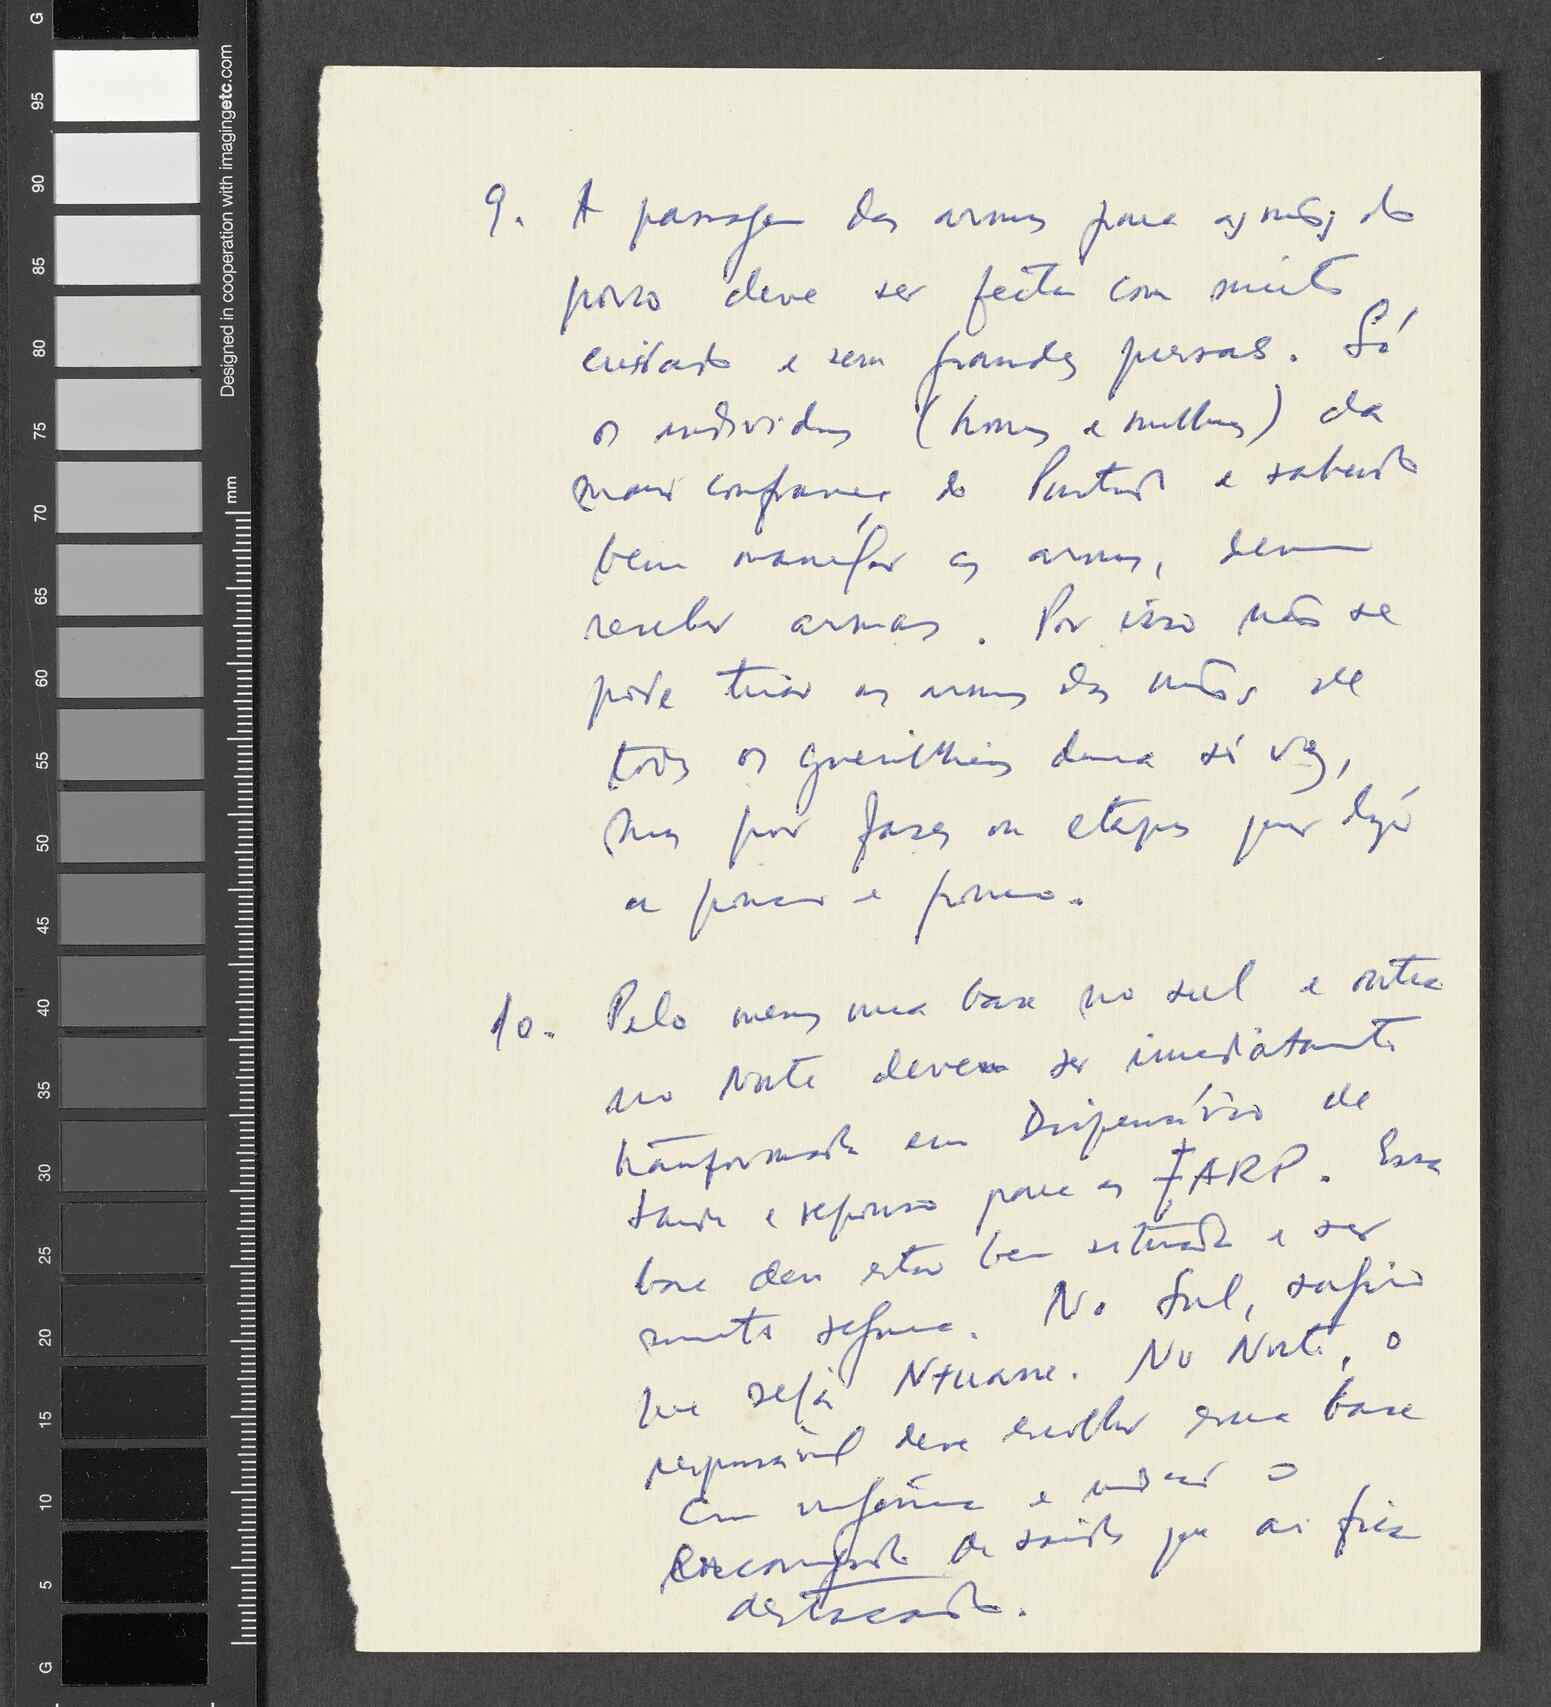 G
95
90
85
80
75
70
65
60
55
50
45
40
35
30
25
20
15
10
5
G
Designed in cooperation with imagingetc.com
mm
9. A passagem das armas para as mãos do
povo deve ser feita com muito
cuidado e sem grandes pressas. Só
os individuos (homens e mulheres) da
maior confiança do Partido e sabendo
bem manejar as armas, devem
receber armas. Por isso não se
pode tirar as armas das mãos de
todos os guerrilheiros duma só vez,
mas por fases ou etapas, quer dizer
a pouco e pouco.
10. Pelo menos uma base no sul e outra
no Norte devem ser imediatamente
transformada em Dispensário de
Saude e repouso para as FARP. Essa
base deve estar bem situada e ser
muito segura. No Sul, sugiro
que seja N'tuane. No Norte, o
responsável deve escolher essa base
com urgência e indicar o
encarregado da saúde que ai fica
destacado.